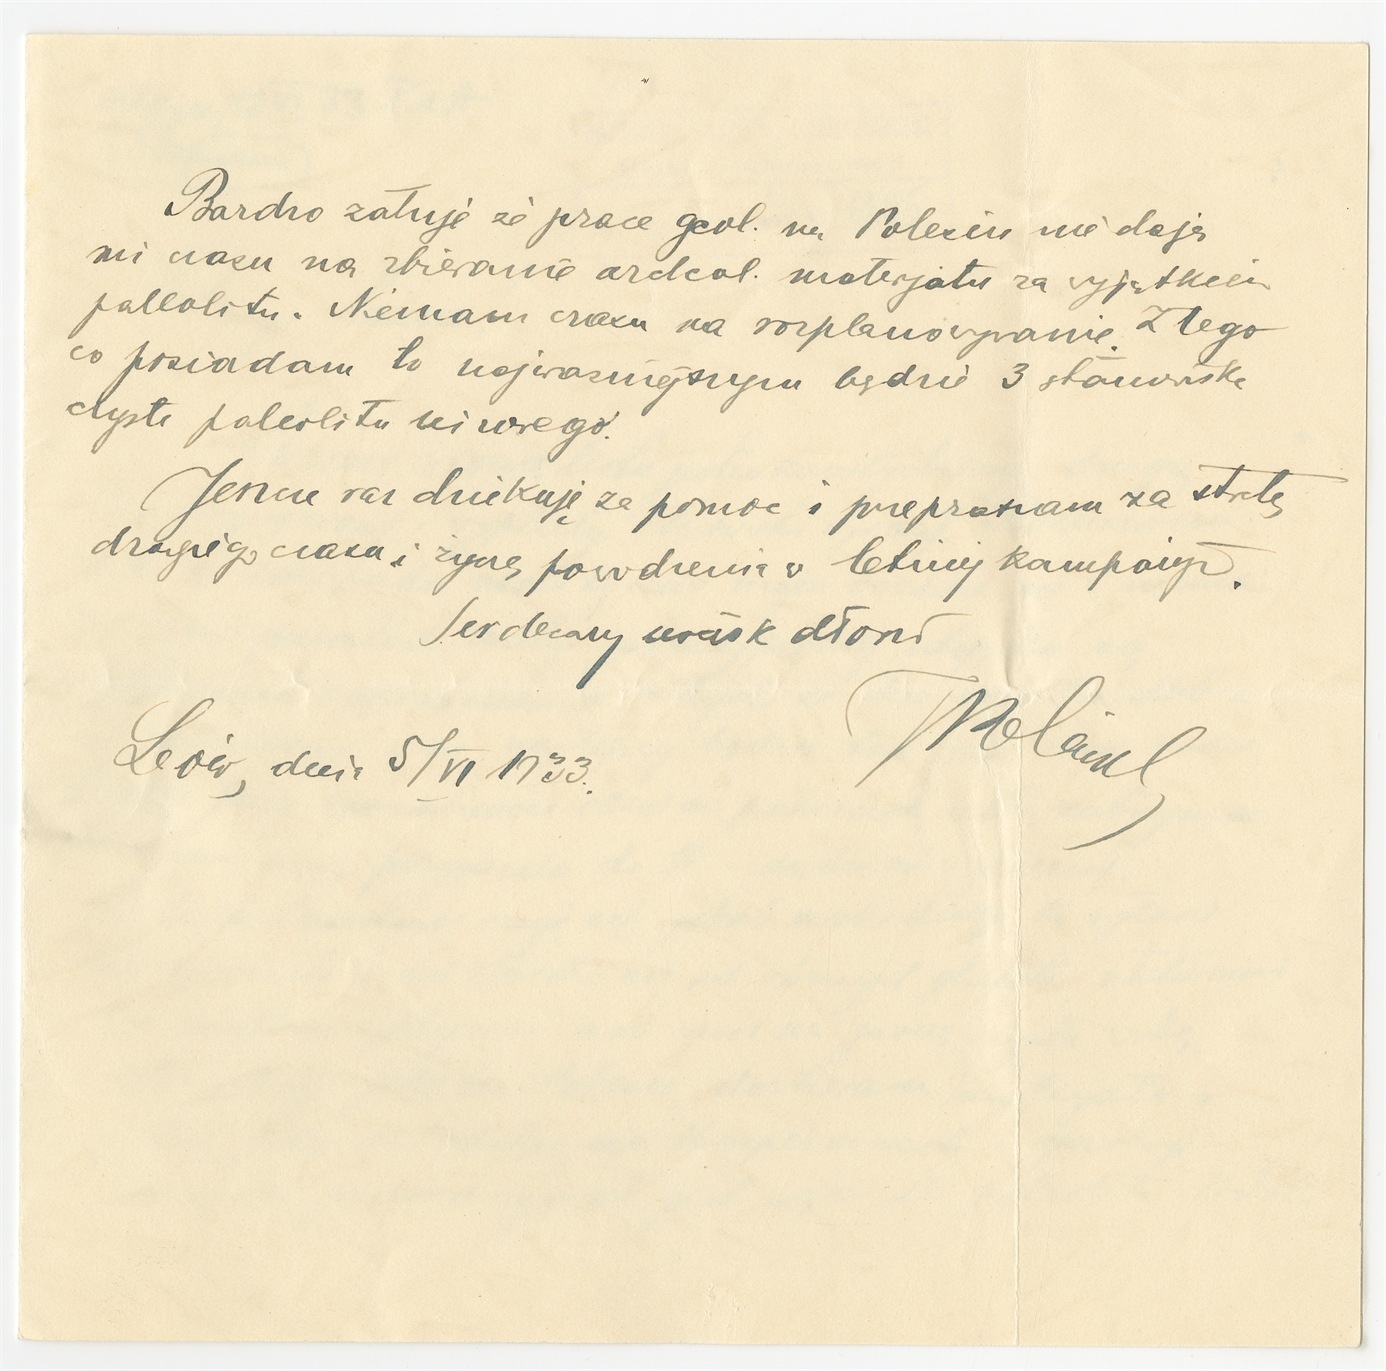 Bardzo żałuję że prace geol. na Polesiu nie dają
mi czasu na zbieranie archeol. materjału za wyjątkiem
paleolitu. Niemam czasu na rozplanowywanie. Z tego
co posiadam to najważniejszym będzie 3 stanowiska
czyste paleolitu niższego.
Jeszcze raz dziekuję za pomoc i przepraszam za stratę
drogiego czasu i życzę powodzenia w letniej kampanji.
Serdeczny uścisk dłoni
Lwów, dnia 5/VI 1933.